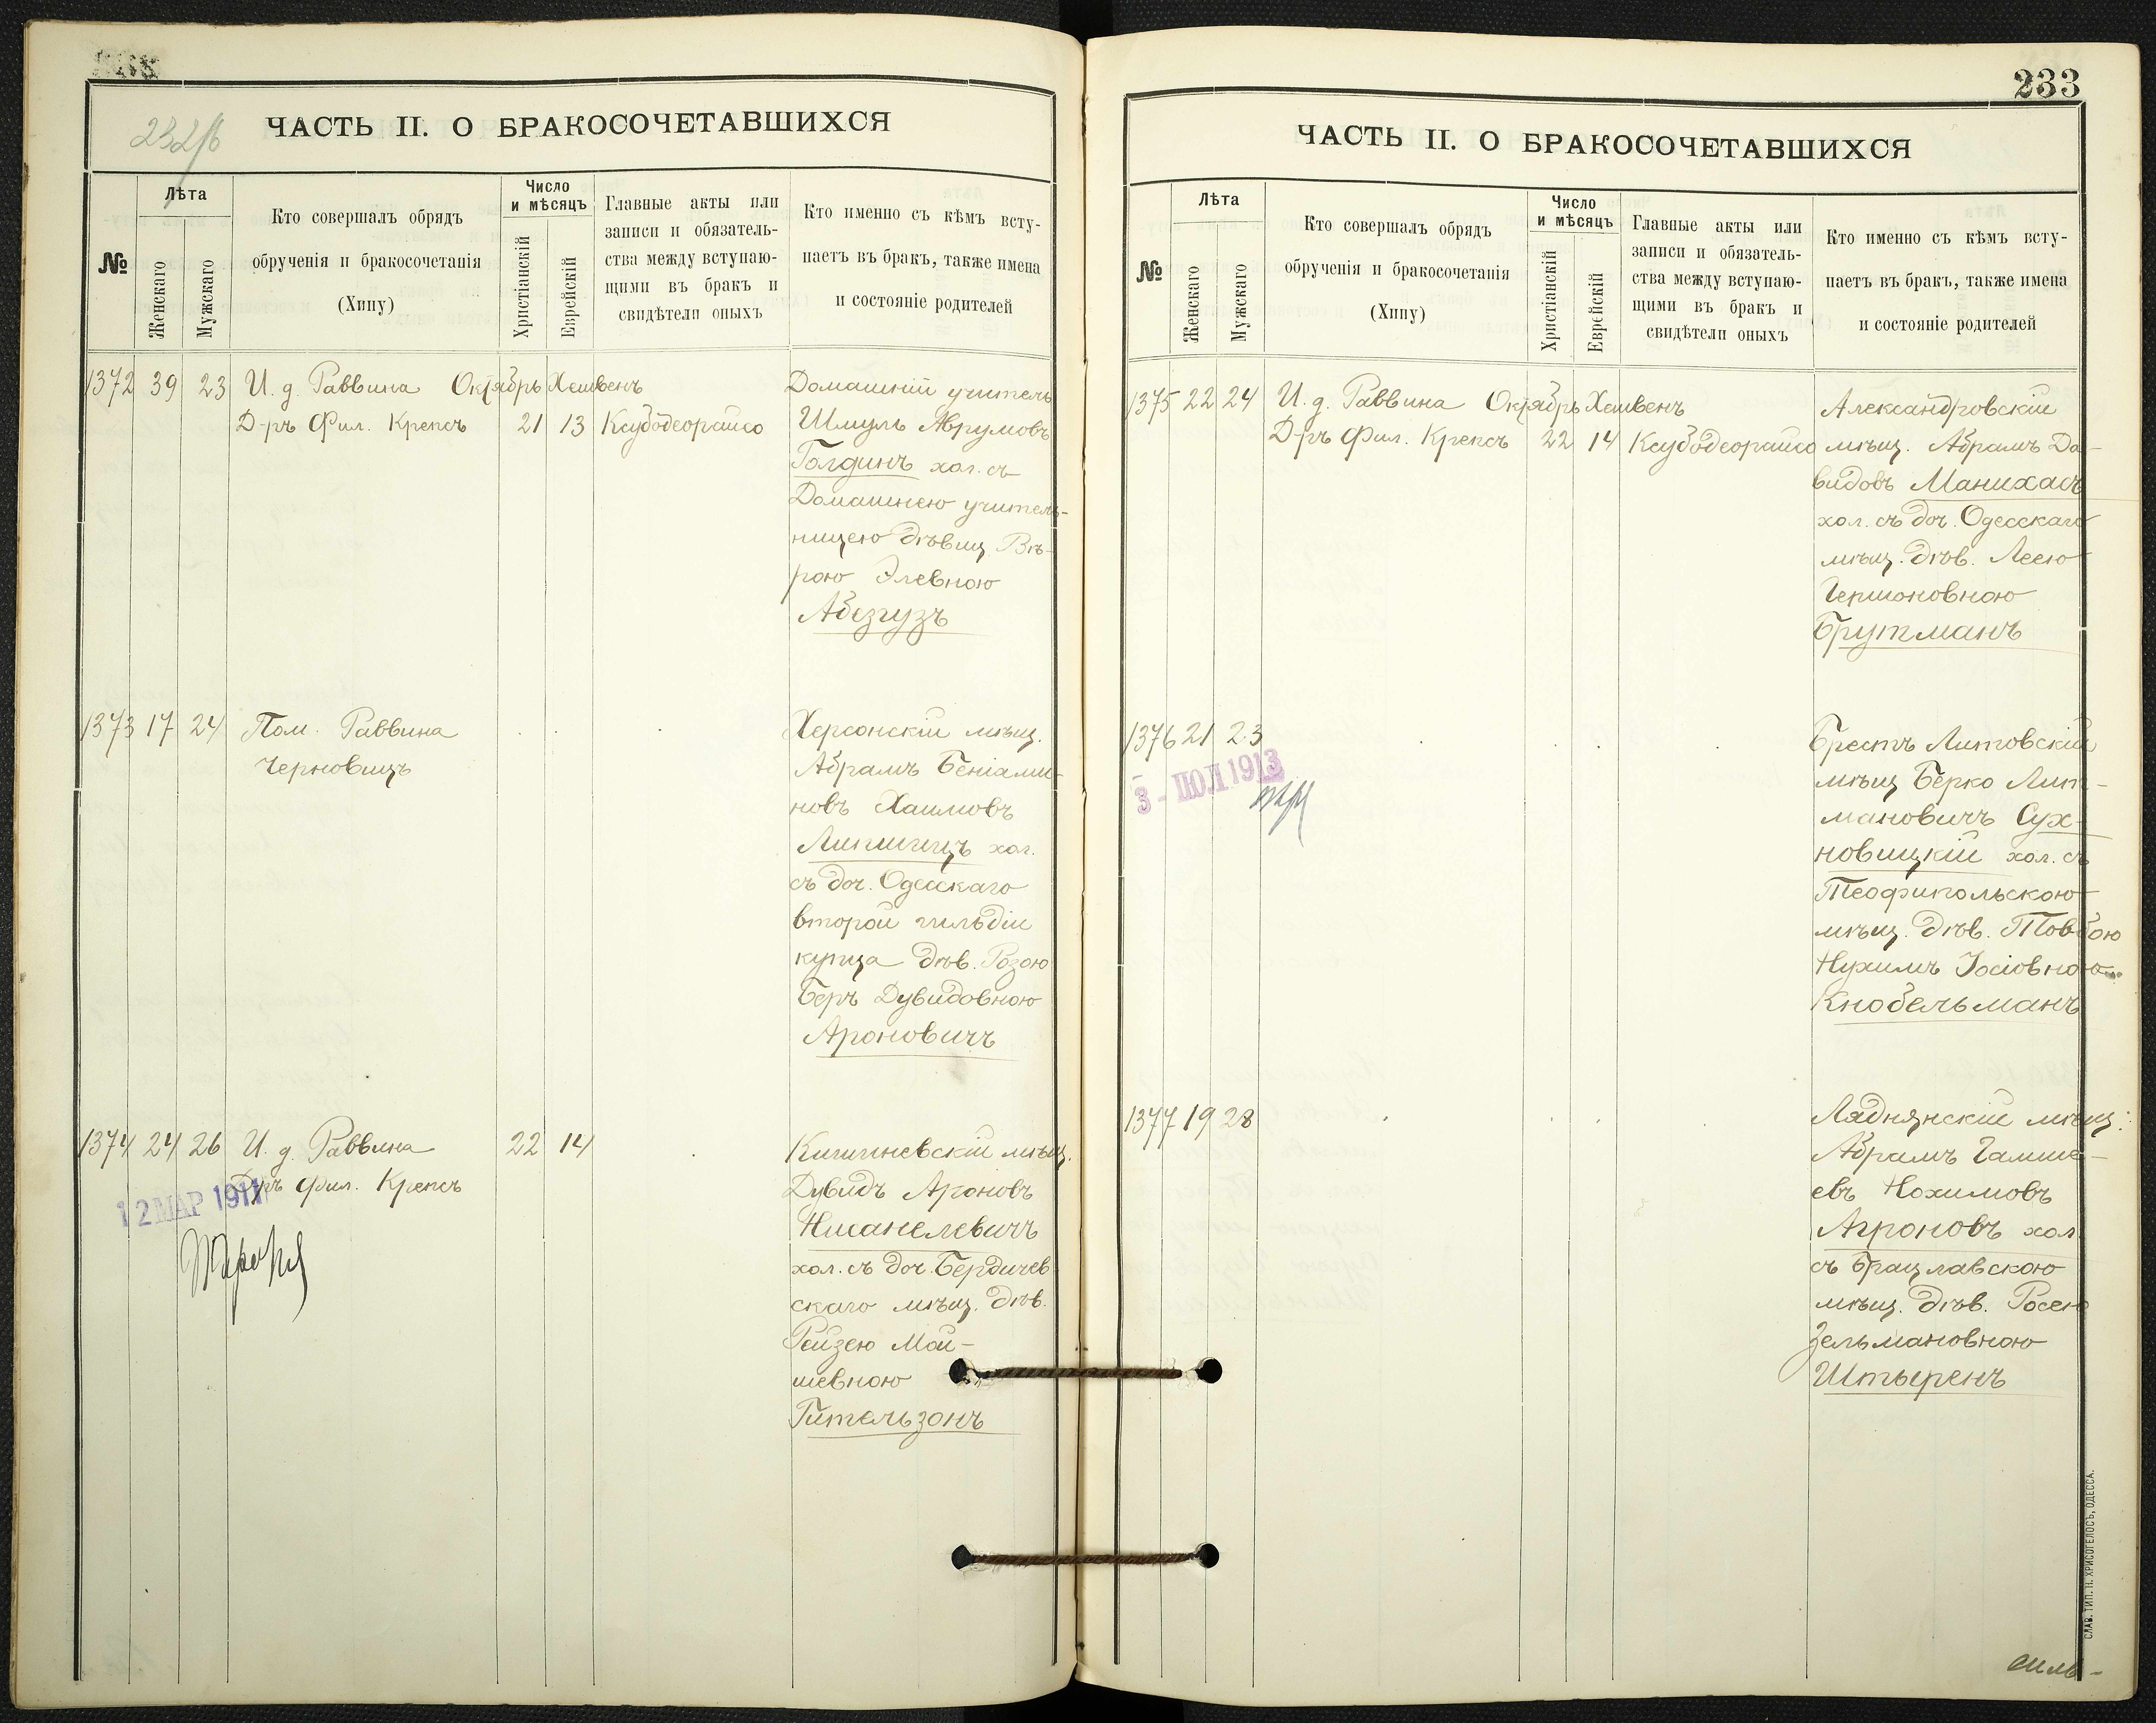 232/б
ЧАСТЬ II. О БРАКОСОЧЕТАВШИХСЯ
№
Лѣта
Женскаго
Мужскаго
Кто совершалъ обрядъ
обрученія и бракосочетанія
(Хипу)
Число
и мѣсяцъ
Христіанскій
Еврейскій
Главные акты или
записи и обязатель-
ства между вступаю-
щими въ бракъ и
свидѣтели оныхъ
Кто именно съ кѣмъ всту-
паетъ въ бракъ, также имена
и состояніе родителей
1372 39 23 И. д. Раввина Октябрь Хешвенъ Домашній учитель
Д-ръ Фил. Крепсъ 21 13 Ксубодеорайсо Шмуль Аврумовъ
Голдинъ хол. съ
Домашнею учитель-
ницею дѣвиц. Вѣ-
рою Элевною
Абезгузъ
1373 17 24 Пом. Раввина Херсонскій мѣщ.
Черновицъ Абрамъ Беніами-
новъ Хаимовъ
Липшицъ хол.
съ доч. Одесскаго
второй гильдіи
купца дѣв. Розою
Беръ Дувидовною
Ароновичъ
1374 24 26 И. д. Раввина 22 14 Кишиневскій мѣщ.
Д-ръ Фил. Крепсъ Дувидъ Ароновъ
12 МАР 1911
Нисанелевичъ
хол. съ доч. Бердичев-
скаго мѣщ. дѣв.
Рейзею Мой-
шевною
Гительзонъ
233
ЧАСТЬ II. О БРАКОСОЧЕТАВШИХСЯ
№
Лѣта
Женскаго
Мужскаго
Кто совершалъ обрядъ
обрученія и бракосочетанія
(Хипу)
Число
и мѣсяцъ
Христіанскій
Еврейскій
Главные акты или
записи и обязатель-
ства между вступаю-
щими въ бракъ и
свидѣтели оныхъ
Кто именно съ кѣмъ всту-
паетъ въ бракъ, также имена
и состояніе родителей
1375 22 24 И. д. Раввина Октябрь Хешвенъ Александровскій
Д-ръ Фил. Крепсъ 22 14 Ксубодеорайсо мѣщ. Абрамъ Да-
видовъ Манихасъ
хол. съ доч. Одесскаго
мѣщ. дѣв. Леею
Гершоновною
Брутманъ
1376 21 23 Брестъ Литовскій
3 - ІЮЛ 1913
мѣщ Берко Лип-
мановичъ Сух-
новицкій хол. съ
Теофипольскою
мѣщ. дѣв. Товбою
Нухимъ Іосіовною
Кнобельманъ
1377 19 28 Ляднянскій мѣщ.
Абрамъ Гамше-
евъ Нохимовъ
Агроновъ хол
съ Брацлавскою
мѣщ. дѣв. Росею
Зельмановною
Штыренъ
СЛАВ. ТИП. Н. ХРИСОГЕЛОСЪ, ОДЕССА.